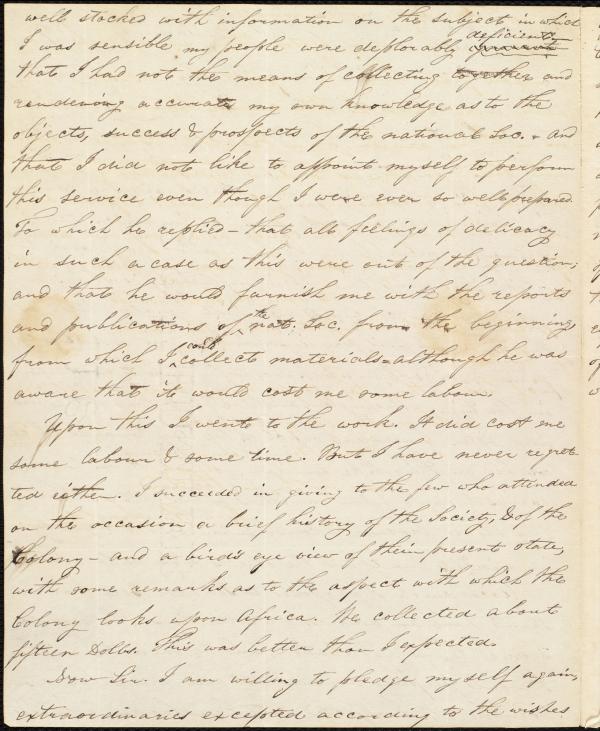 well stocked with information on the subject in which
deficient
I was sensible my people were deplorably
that I had not the means of collecting together and
rendering accurate my own knowledge as to the
objects, success & prospects of the national Soc. - and
that I did not like to appoint myself to perform
this service even though I were ever so well prepared.
To which he replied - that all feelings of delicacy
in such a case as this were out of the question;
and that he would furnish me with the reports
and publications of the nat. Soc. from the beginning
from which I could collect materials - although he was
aware that it would cost me some labour.
Upon this I went to the work. It did cost me
some labour & some time. But I have never regret-
ted either. I succeeded in giving to the few who attended
on the occasion a brief history of the Society, & of the
Colony - and a bird's eye view of their present state,
with some remarks as to the aspect with which the
Colony looks upon Africa. We collected about
fifteen Dolls. This was better than I expected.
Now Sir. I am willing to pledge myself again,
extraordinaries excepted according to the wishes